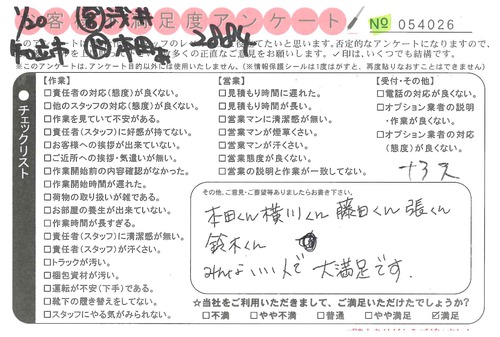 お客様満足度アンケート
№ 054026
※このアンケートは、アンケート目的以外には使用いたしません。(※情報保護シールは1度はがすと、再度貼りなおすことはできません)
チェックリスト
【作業】
□責任者の対応(態度)が良くない。
□他のスタッフの対応(態度)が良くない。
□作業を見ていて不安がある。
□責任者(スタッフ)に好感が持てない。
□お客様への挨拶が出来ていない。
□ご近所への挨拶・気遣いが無い。
□作業開始前の内容確認がなかった。
□作業開始時間が遅れた。
□荷物の取り扱いが雑である。
□お部屋の養生が出来ていない。
□作業時間が長すぎる。
□責任者(スタッフ)に清潔感が無い。
□責任者(スタッフ)が汗くさい。
□トラックが汚い。
□梱包資材が汚い。
□運転が不安(下手)である。
□靴下の履き替えをしてない。
□スタッフにやる気がみられない。
【営業】
□見積もり時間に遅れた。
□見積もり時間が長い。
□営業マンに清潔感が無い。
□営業マンが煙草くさい。
□営業マンが汗くさい。
□営業態度が良くない。
□営業の説明と作業が一致してない。
【受付・その他】
□電話の対応が良くない。
□オプション業者の説明
・作業が良くない。
□オプション業者の対応
(態度)が良くない。
その他、ご意見・ご要望等ありましたらお書き下さい。
本田くん 横川くん 藤田くん 張くん
鈴木くん
みんないい人で 大満足です。
☆当社をご利用いただきまして、ご満足いただけたでしょうか?
□不満 □やや不満 □普通 □やや満足 ☑満足